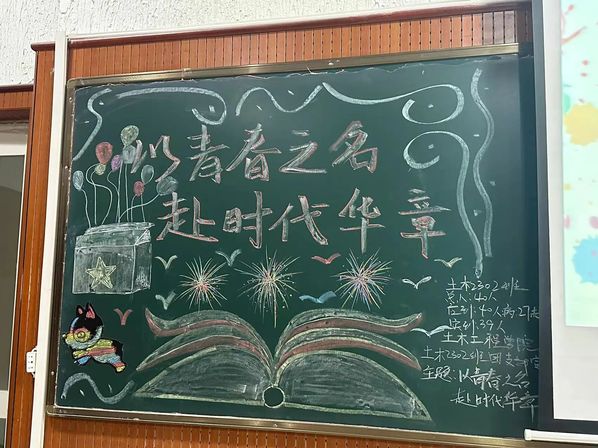 以青春之名
赴时代华章
土木2302班
总人:40人
应到:40人 病1
实到:39人
土木工程学院
土木2302班团支部
主题:以青春之名
赴时代华章